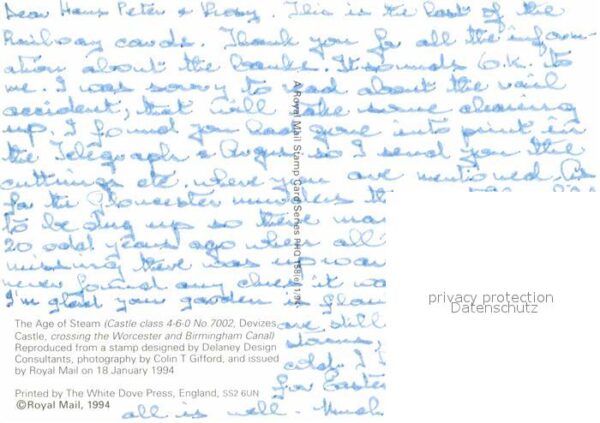 Dear Hans Peter & 
Railway cards. Thank you for all the inform-
ation about the banks. It sounds O.K. to
me. I was sorry to read about the rail
accident, that will take some clearing
up. I found you had gone into print in
the Telegraph & Argus so I send you the
cuttings etc. where you are mentioned. As
for the Gloucester murders th
to be dug up so there may
20 odd years ago when all
missing there was
never found any clues it wa
I'm glad your garden is
are still
cold. I
for Easter
all is well. Much
A Royal Mail Stamp Card Series PHQ 158(e) 1/94
The Age of Steam (Castle class 4-6-0 No.7002, Devizes
Castle, crossing the Worcester and Birmingham Canal)
Reproduced from a stamp designed by Delaney Design
Consultants, photography by Colin T Gifford, and issued
by Royal Mail on 18 January 1994
Printed by The White Dove Press, England, SS2 6UN
©Royal Mail, 1994
privacy protection
Datenschutz